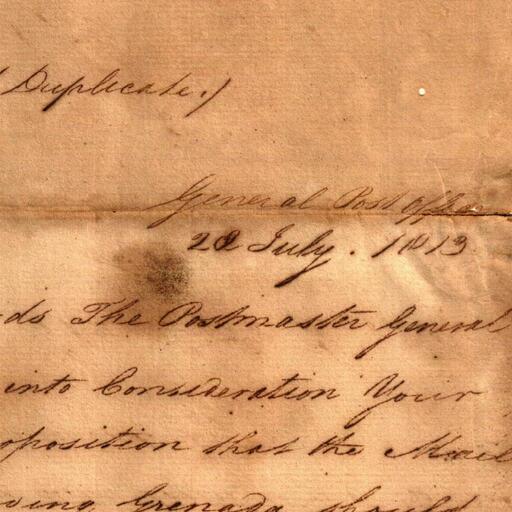 (Duplicate.)
General Post Office
22 July. 1813
The Postmaster General
into Consideration Your
that the Mail
Grenada should